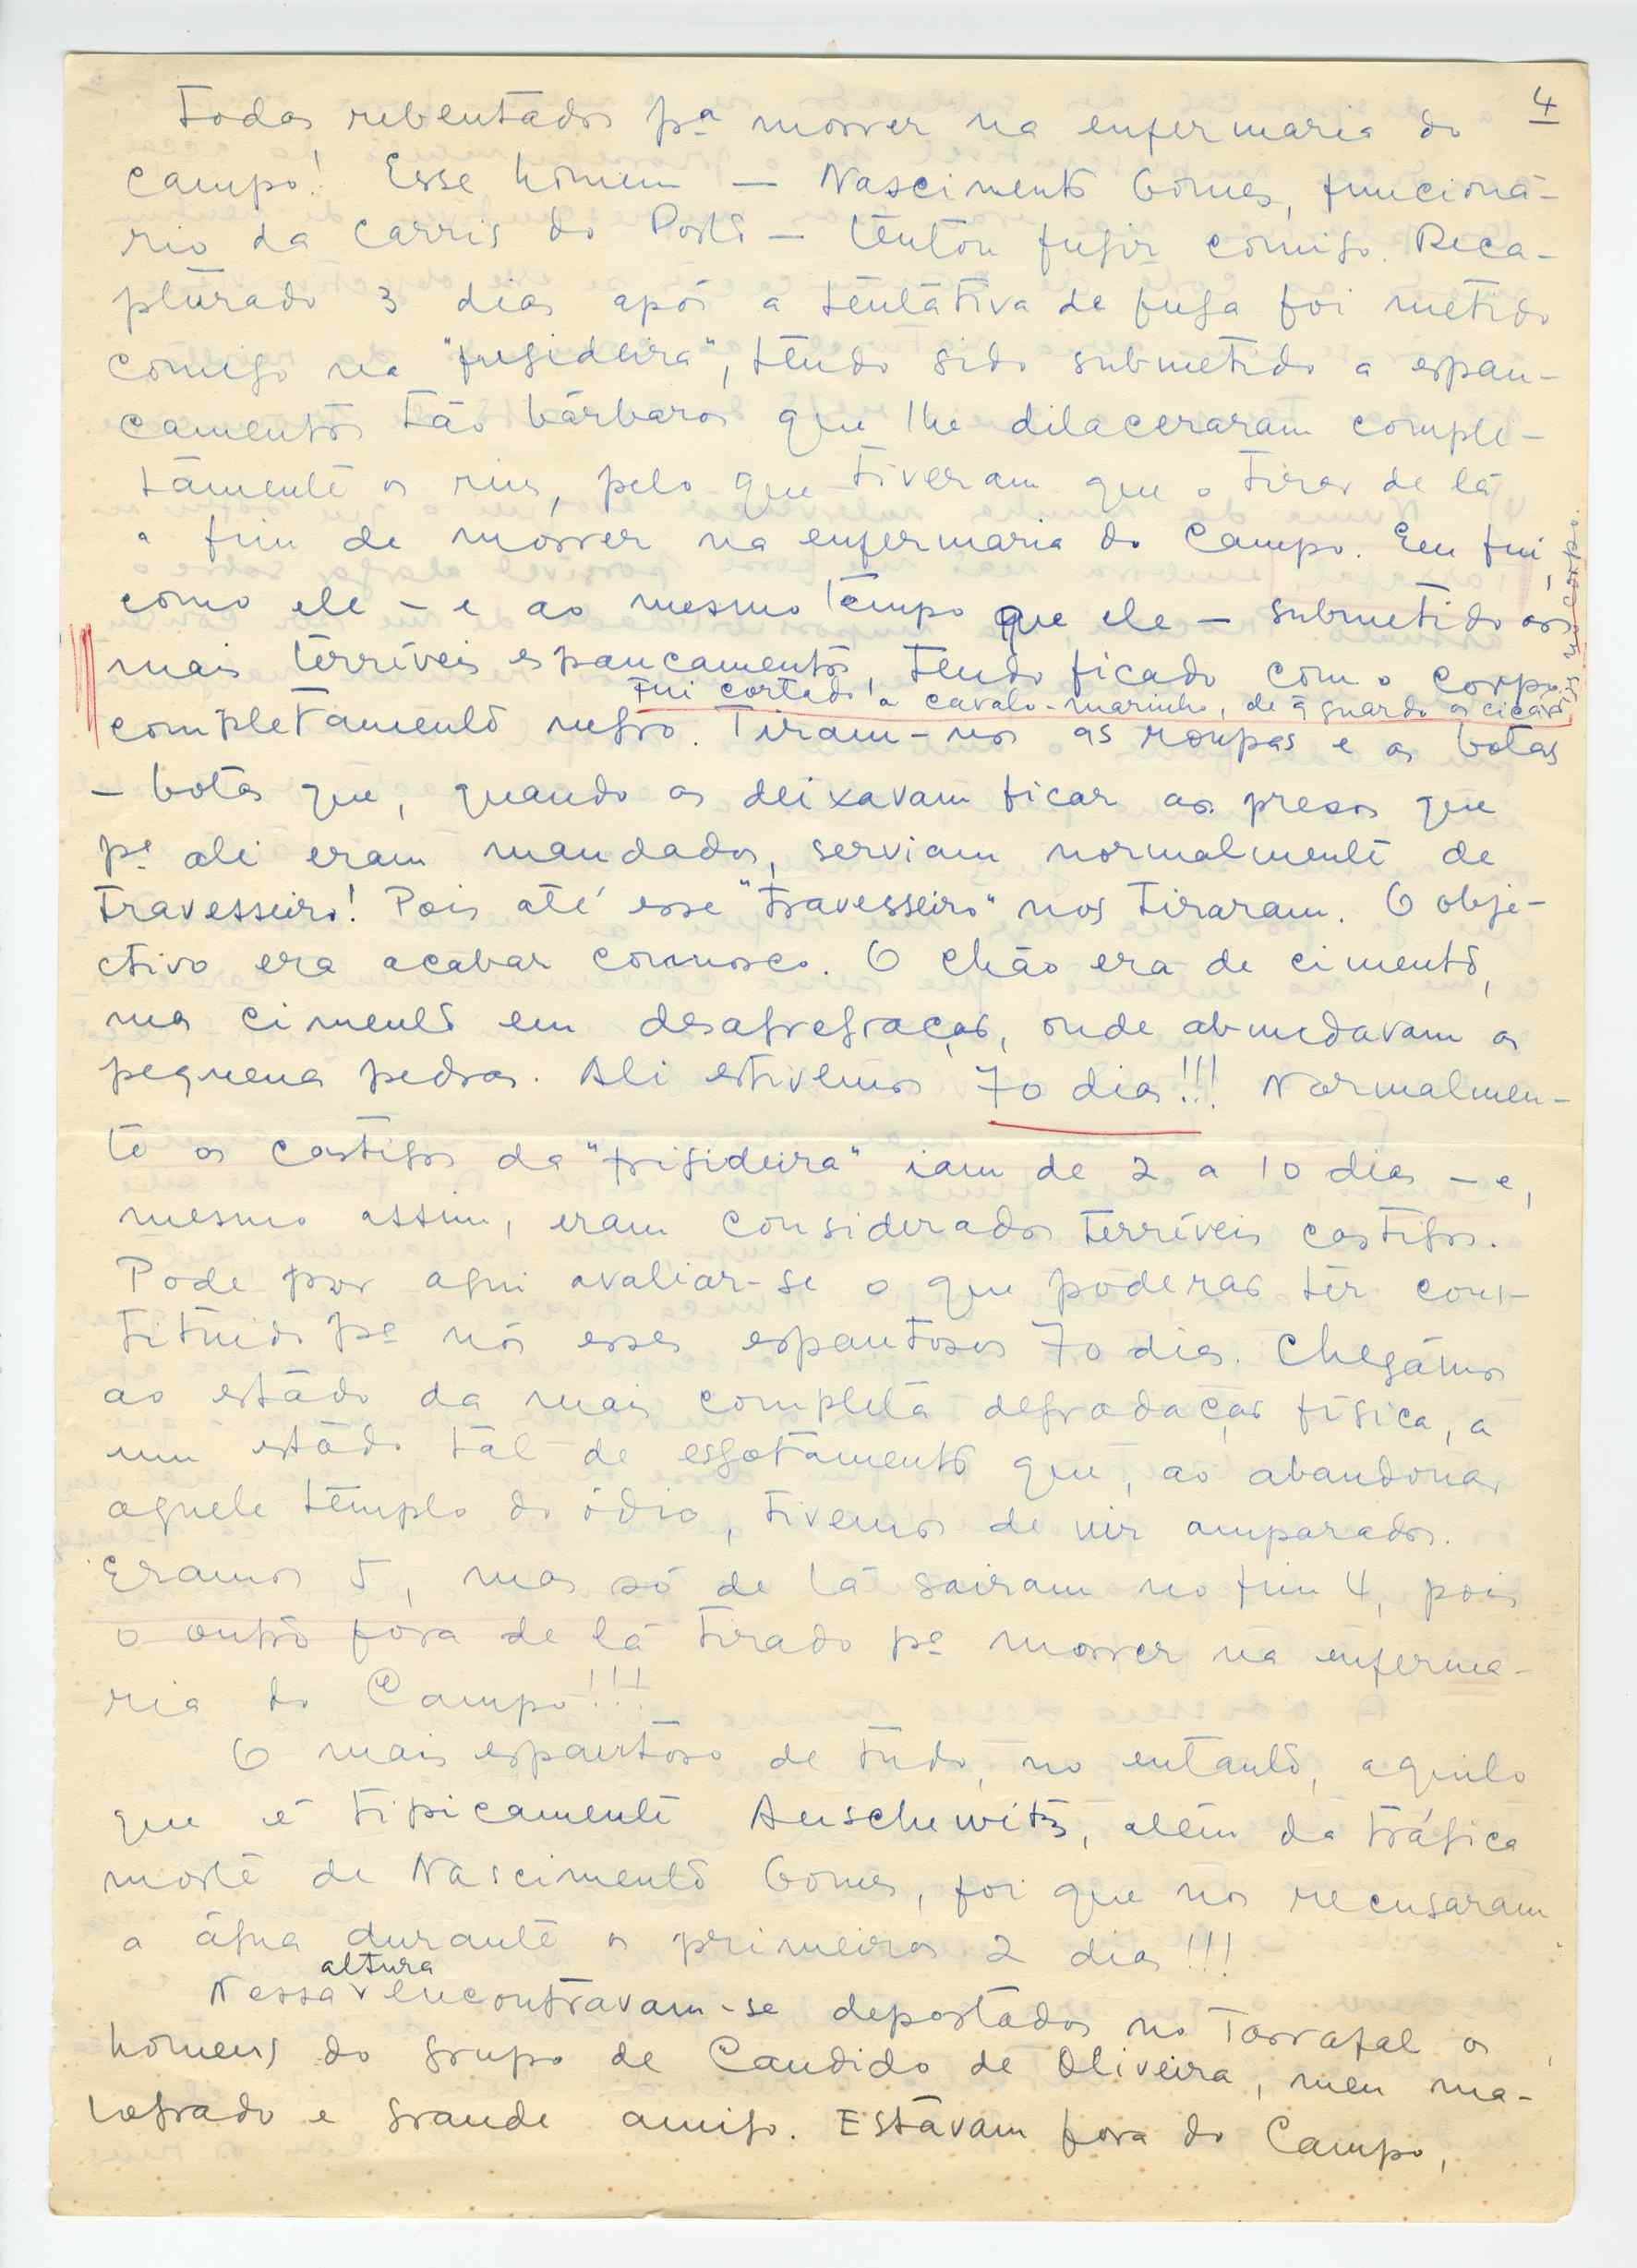 4
todos rebentados pª morrer na enfermaria do
campo! Esse homem — Nascimento Gomes, funcioná-
rio da Carris do Porto — tentou fugir comigo. Reca-
pturado 3 dias após a tentativa de fuga foi metido
comigo na "frigideira", tendo sido submetido a espan-
camentos tão bárbaros que lhe dilaceraram comple-
tamente os rins, pelo que tiveram que o tirar de lá
a fim de morrer na enfermaria do Campo. Eu fui,
como ele – e ao mesmo tempo que ele – submetido aos
mais terríveis espancamentos, tendo ficado com o corpo
Fui cortado a cavalo-marinho, de q guardo as cicatrizes no corpo.
completamente negro. Tiram-nos as roupas e as botas
– botas que, quando as deixavam ficar aos presos que
pª ali eram mandados, serviam normalmente de
travesseiro! Pois até esse "travesseiro" nos tiraram. O obje-
ctivo era acabar connosco. O chão era de cimento,
mas cimento em desagregação, onde abundavam as
pequenas pedras. Ali estivemos 70 dias!!! Normalmen-
te os castigos da "frigideira" iam de 2 a 10 dias – e,
mesmo assim, eram considerados terríveis castigos.
Pode por aqui avaliar-se o que poderão ter cons-
tituido pª nós esses espantosos 70 dias. Chegámos
ao estado da mais completa degradação física, a
um estado tal de esgotamento que, ao abandonar
aquele templo do ódio, tivemos de vir amparados.
Eramos 5, mas só de lá sairam no fim 4, pois
o outro fora de lá tirado pª morrer na enferma-
ria do Campo!!!
O mais espantoso de tudo, no entanto, aquilo
que é tipicamente Auschewitz, além da trágica
morte de Nascimento Gomes, foi que nos recusaram
a água durante os primeiros 2 dias!!!
altura
Nessa encontravam-se deportados no Tarrafal os
homens do grupo de Candido de Oliveira, meu ma-
logrado e grande amigo. Estavam fora do Campo,